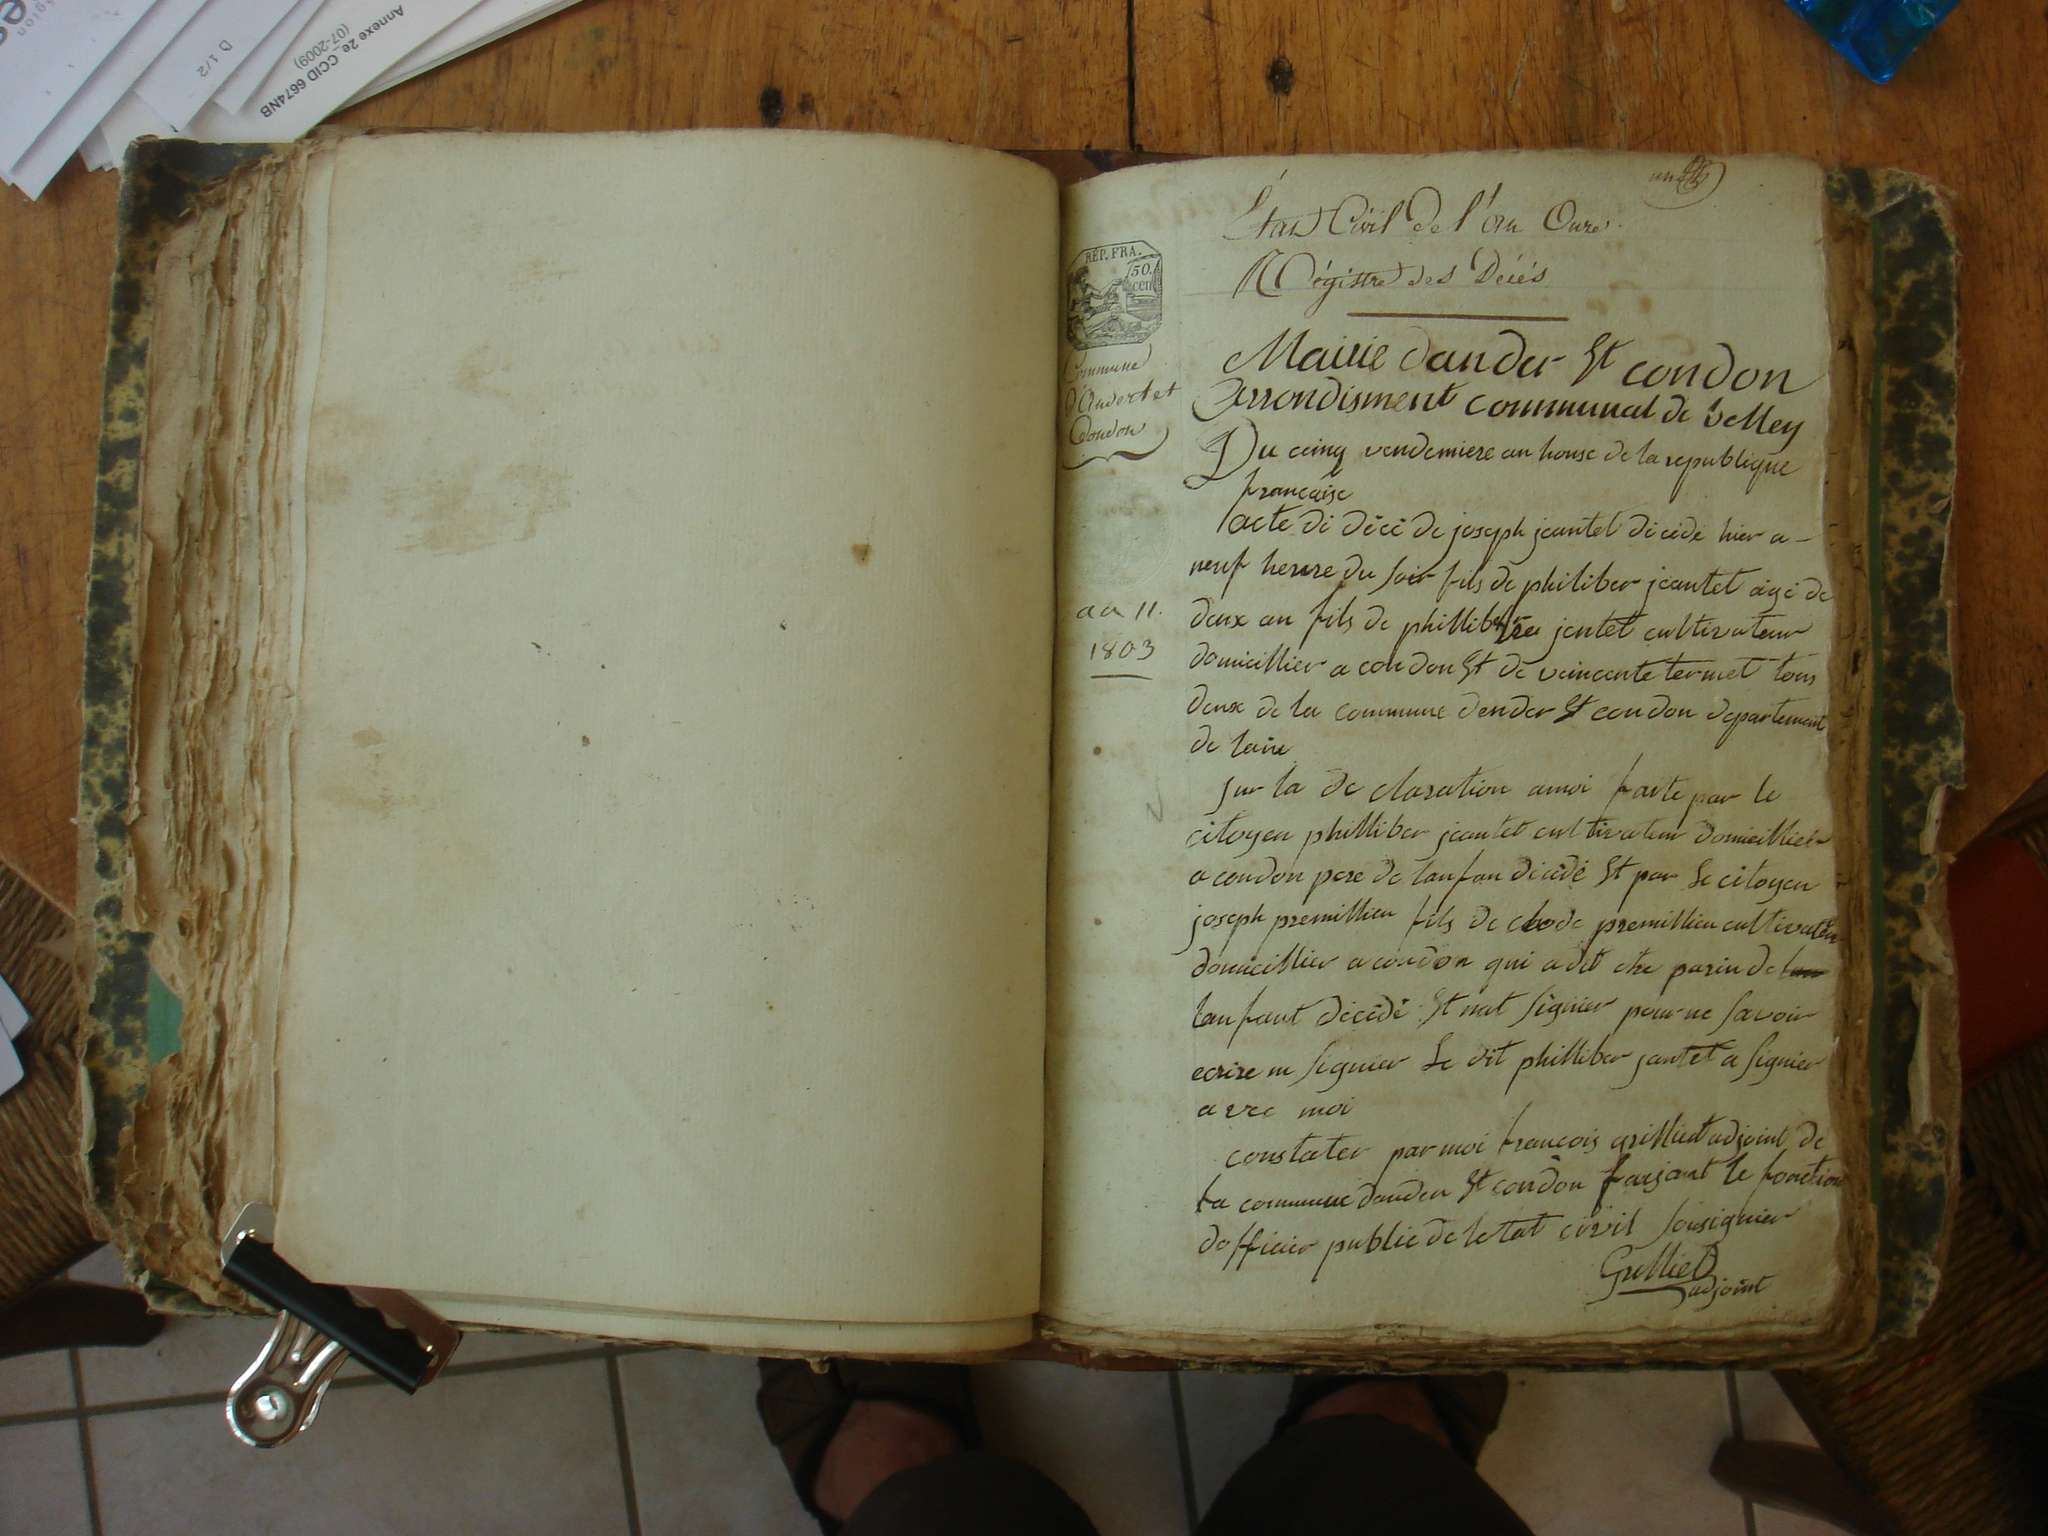 Annexe 2e_CCID 6674NB
(07-2009)
D 1/2
Etat Civil de l'an Onze.
Régistre des Décés
RÉP. FRA.
50.
cen
Commune
d'Andert et
Condon
an 11.
1803
Mairie dander Et condon
Arrondisment communal de belley
Du cinq vendemiere an honse de la republique
française
acte di décé de joseph jeantet dicédé hier a -
neuf herure du soir fils de philiber jeantet agé de
deux an fils de phillibere jentet cultivateur
domicillier a condon Et de veincente termet tous
deux de la commune dender Et condon departement
de lain
sur la de claration amoi faite par le
citoyen philliber jeantet cultivateur domicillier
a condon pere de lanfan dicédé Et par Le citoyen
joseph premillieu fils de clode premillieu cultivateur
domicillier a condon qui a dit etre parin de
lanfant décédé Et nat signier pour ne savoir
ecrire ni signier Le dit philliber jantet a signier
avec moi
constater par moi francois grilliet adjoint de
la commune dander Et condon faisant le fonction
dofficier public de letat civil soisignier
Grilliet
adjoint